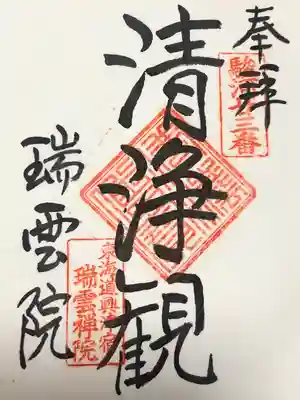 奉拝
駿河十三番
清浄観
東海道興津宿
瑞雲禅院
瑞雲院